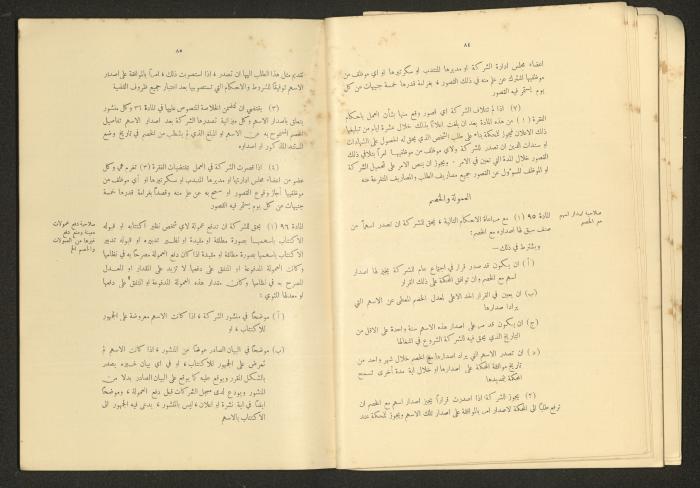 ٨٤
اعضاء مجلس ادارة الشركة او مديرها المنتدب او سكرتيرها او اي موظف من
موظفيها اشترك عن علم منه في ذلك القصور ، بغرامة قدرها خمسة جنيهات عن كل
يوم يستمر فيه القصور
(٧) اذا لم تتلاف الشركة اي قصور وقع منها بشأن العمل باحكام
الفقرة (١) من هذه المادة بعد ان بلغت اعلاناً بذلك خلال عشرة ايام من تبليغها
ذلك الاعلان يجوز للمحكمة بناء على طلب الشخص الذي يحق له الحصول على الشهادات
او سندات الدين ان تصدر للشركة ولاي موظف من موظفيها امراً بتلافي ذلك
القصور خلال المدة التي تعين في الامر ، ويجوز ان ينص الامر على تحميل الشركة
او الموظف المسؤول عن القصور جميع مصاريف الطلب والمصاريف المتفرعة عنه
العمولة والخصم
صلاحية اصدار اسهم
مع الخصم
المادة ٩٥ (١) مع مراعاة الاحكام التالية ، يحق للشركة ان تصدر اسهماً من
صنف سبق لها اصداره مع الخصم:
ويشترط في ذلك —
(أ) ان يكون قد صدر قرار في اجتماع عام للشركة يجيز لها اصدار
اسهم مع الخصم وان توافق المحكمة على ذلك القرار
(ب) ان يعين في القرار الحد الاعلى لمعدل الخصم المعطى عن الاسهم التي
يراد اصدارها
(ج) ان يكون قد مر على اصدار هذه الاسهم سنة واحدة على الاقل من
التاريخ الذي يحق فيه للشركة الشروع في اشغالها
(د) ان تصدر الاسهم التي يراد اصدارها مع الخصم خلال شهر واحد من
تاريخ موافقة المحكمة على اصدارها او خلال اية مدة أخرى تسمح
المحكمة بتمديدها
(٢) يجوز للشركة اذا اصدرت قراراً يجيز اصدار اسهم مع الخصم ان
ترفع طلباً الى المحكمة لاصدار امر بالموافقة على اصدار تلك الاسهم ويجوز للمحكمة عند
٨٥
تقديم مثل هذا الطلب اليها ان تصدر ، اذا استصوبت ذلك ، امراً بالموافقة على اصدار
الاسهم توفيقاً للشروط والاحكام التي تستصوبها بعد اعتبار جميع ظروف القضية
(٣) يقتضي ان تتضمن الخلاصة المنصوص عليها في المادة ٣٦ وكل منشور
يتعلق باصدار الاسهم وكل ميزانية تصدرها الشركة بعد اصدار الاسهم تفاصيل
الخصم المسموح به عن الاسهم او المبلغ الذي لم يشطب من الخصم في تاريخ وضع
المستند المذكور او اصداره
(٤) اذا قصرت الشركة في العمل بمقتضيات الفقرة (٣) تغرم هي وكل
عضو من اعضاء مجلس ادارتها او مديرها المنتدب او سكرتيرها او أي موظف من
موظفيها اجاز وقوع القصور او سمح به عن علم منه وقصداً بغرامة قدرها خمسة
جنيهات عن كل يوم يستمر فيه القصور
صلاحية دفع عمولات
معينة ومنع دفع
غيرها من العمولات
والخصم الخ
المادة ٩٦ (١) يحق للشركة ان تدفع عمولة لاي شخص نظير اكتتابه او قبوله
الاكتتاب باسهمها بصورة مطلقة او مقيدة او نظير تدبيره او قبوله تدبير
الاكتتاب باسهمها بصورة مطلقة او مقيدة اذا كان دفع العمولة مصرحاً به في نظامها
وكانت العمولة المدفوعة او المتفق على دفعها لا تزيد على المقدار او المعدل
المصرح به في نظامها وكان مقدار هذه العمولة المدفوعة او المتفق على دفعها
او معدلها المئوي :
(أ) موضحاً في منشور الشركة ، اذا كانت الاسهم معروضة على الجمهور
للاكتتاب ، او
(ب) موضحاً في البيان الصادر عوضاً عن المنشور ، اذا كانت الاسهم لم
تعرض على الجمهور للاكتتاب ، او في اي بيان خبره يصدر
بالشكل المقرر ويوقع عليه كما يوقع على البيان الصادر بدلاً من
المنشور ويودع لدى مسجل الشركات قبل دفع العمولة ، وموضحاً
ايضاً في اية نشرة او اعلان ، ليس بالمنشور ، يدعى فيه الجمهور الى
الاكتتاب بالاسهم